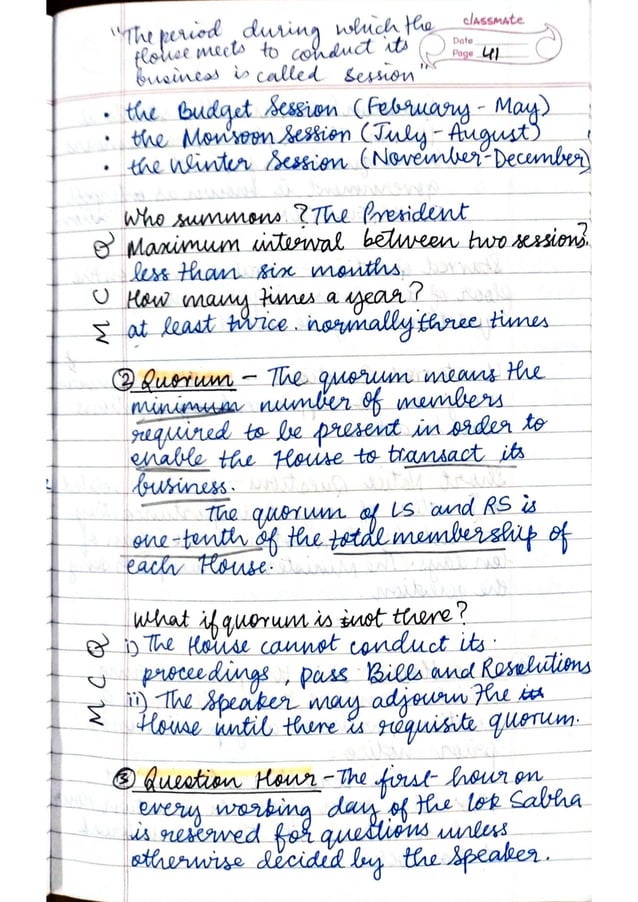 "The period during which the
House meets to conduct its
business is called Session"
classmate
Date
Page 41
• the Budget Session (February - May)
• the Monsoon Session (July - August)
• the Winter Session (November-December)
Who summons? The President
Maximum interval between two sessions?
less than six months,
How many times a year?
at least twice. normally three times
MCQ
② Quorum - The quorum means the
minimum number of members
required to be present in order to
enable the House to transact its
business.
The quorum of LS and RS is
one-tenth of the total membership of
each House.
What if quorum is not there?
i) The House cannot conduct its
proceedings, pass Bills and Resolutions
ii) The Speaker may adjourn the
House until there is requisite quorum.
MCQ
③ Question Hour - The first hour on
every working day of the lok Sabha
is reserved for questions unless
otherwise decided by the Speaker.